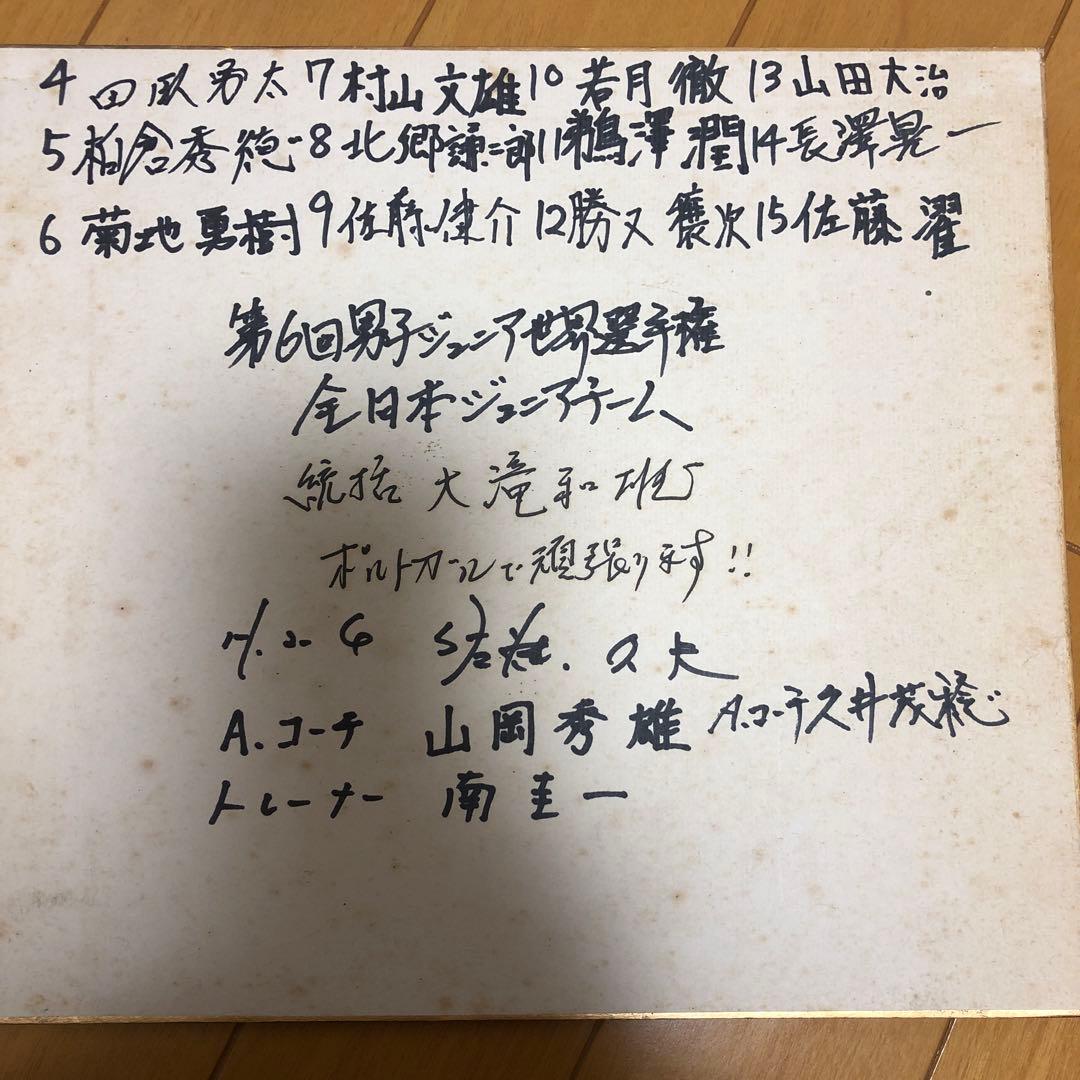 4 田臥勇太 7 村山文雄 10 若月徹 13 山田大治
5 柏倉秀徳 8 北郷謙二郎 11 鵜澤潤 14 長澤晃一
6 菊地勇樹 9 佐藤健介 12 勝又穣次 15 佐藤濯
第6回男子ジュニア世界選手権
全日本ジュニアチーム
統括 大滝和雄
ポルトガールで頑張ります!!
久夫
A.コーチ 山岡秀雄 A.コーチ 久井茂稔
トレーナー 南圭一